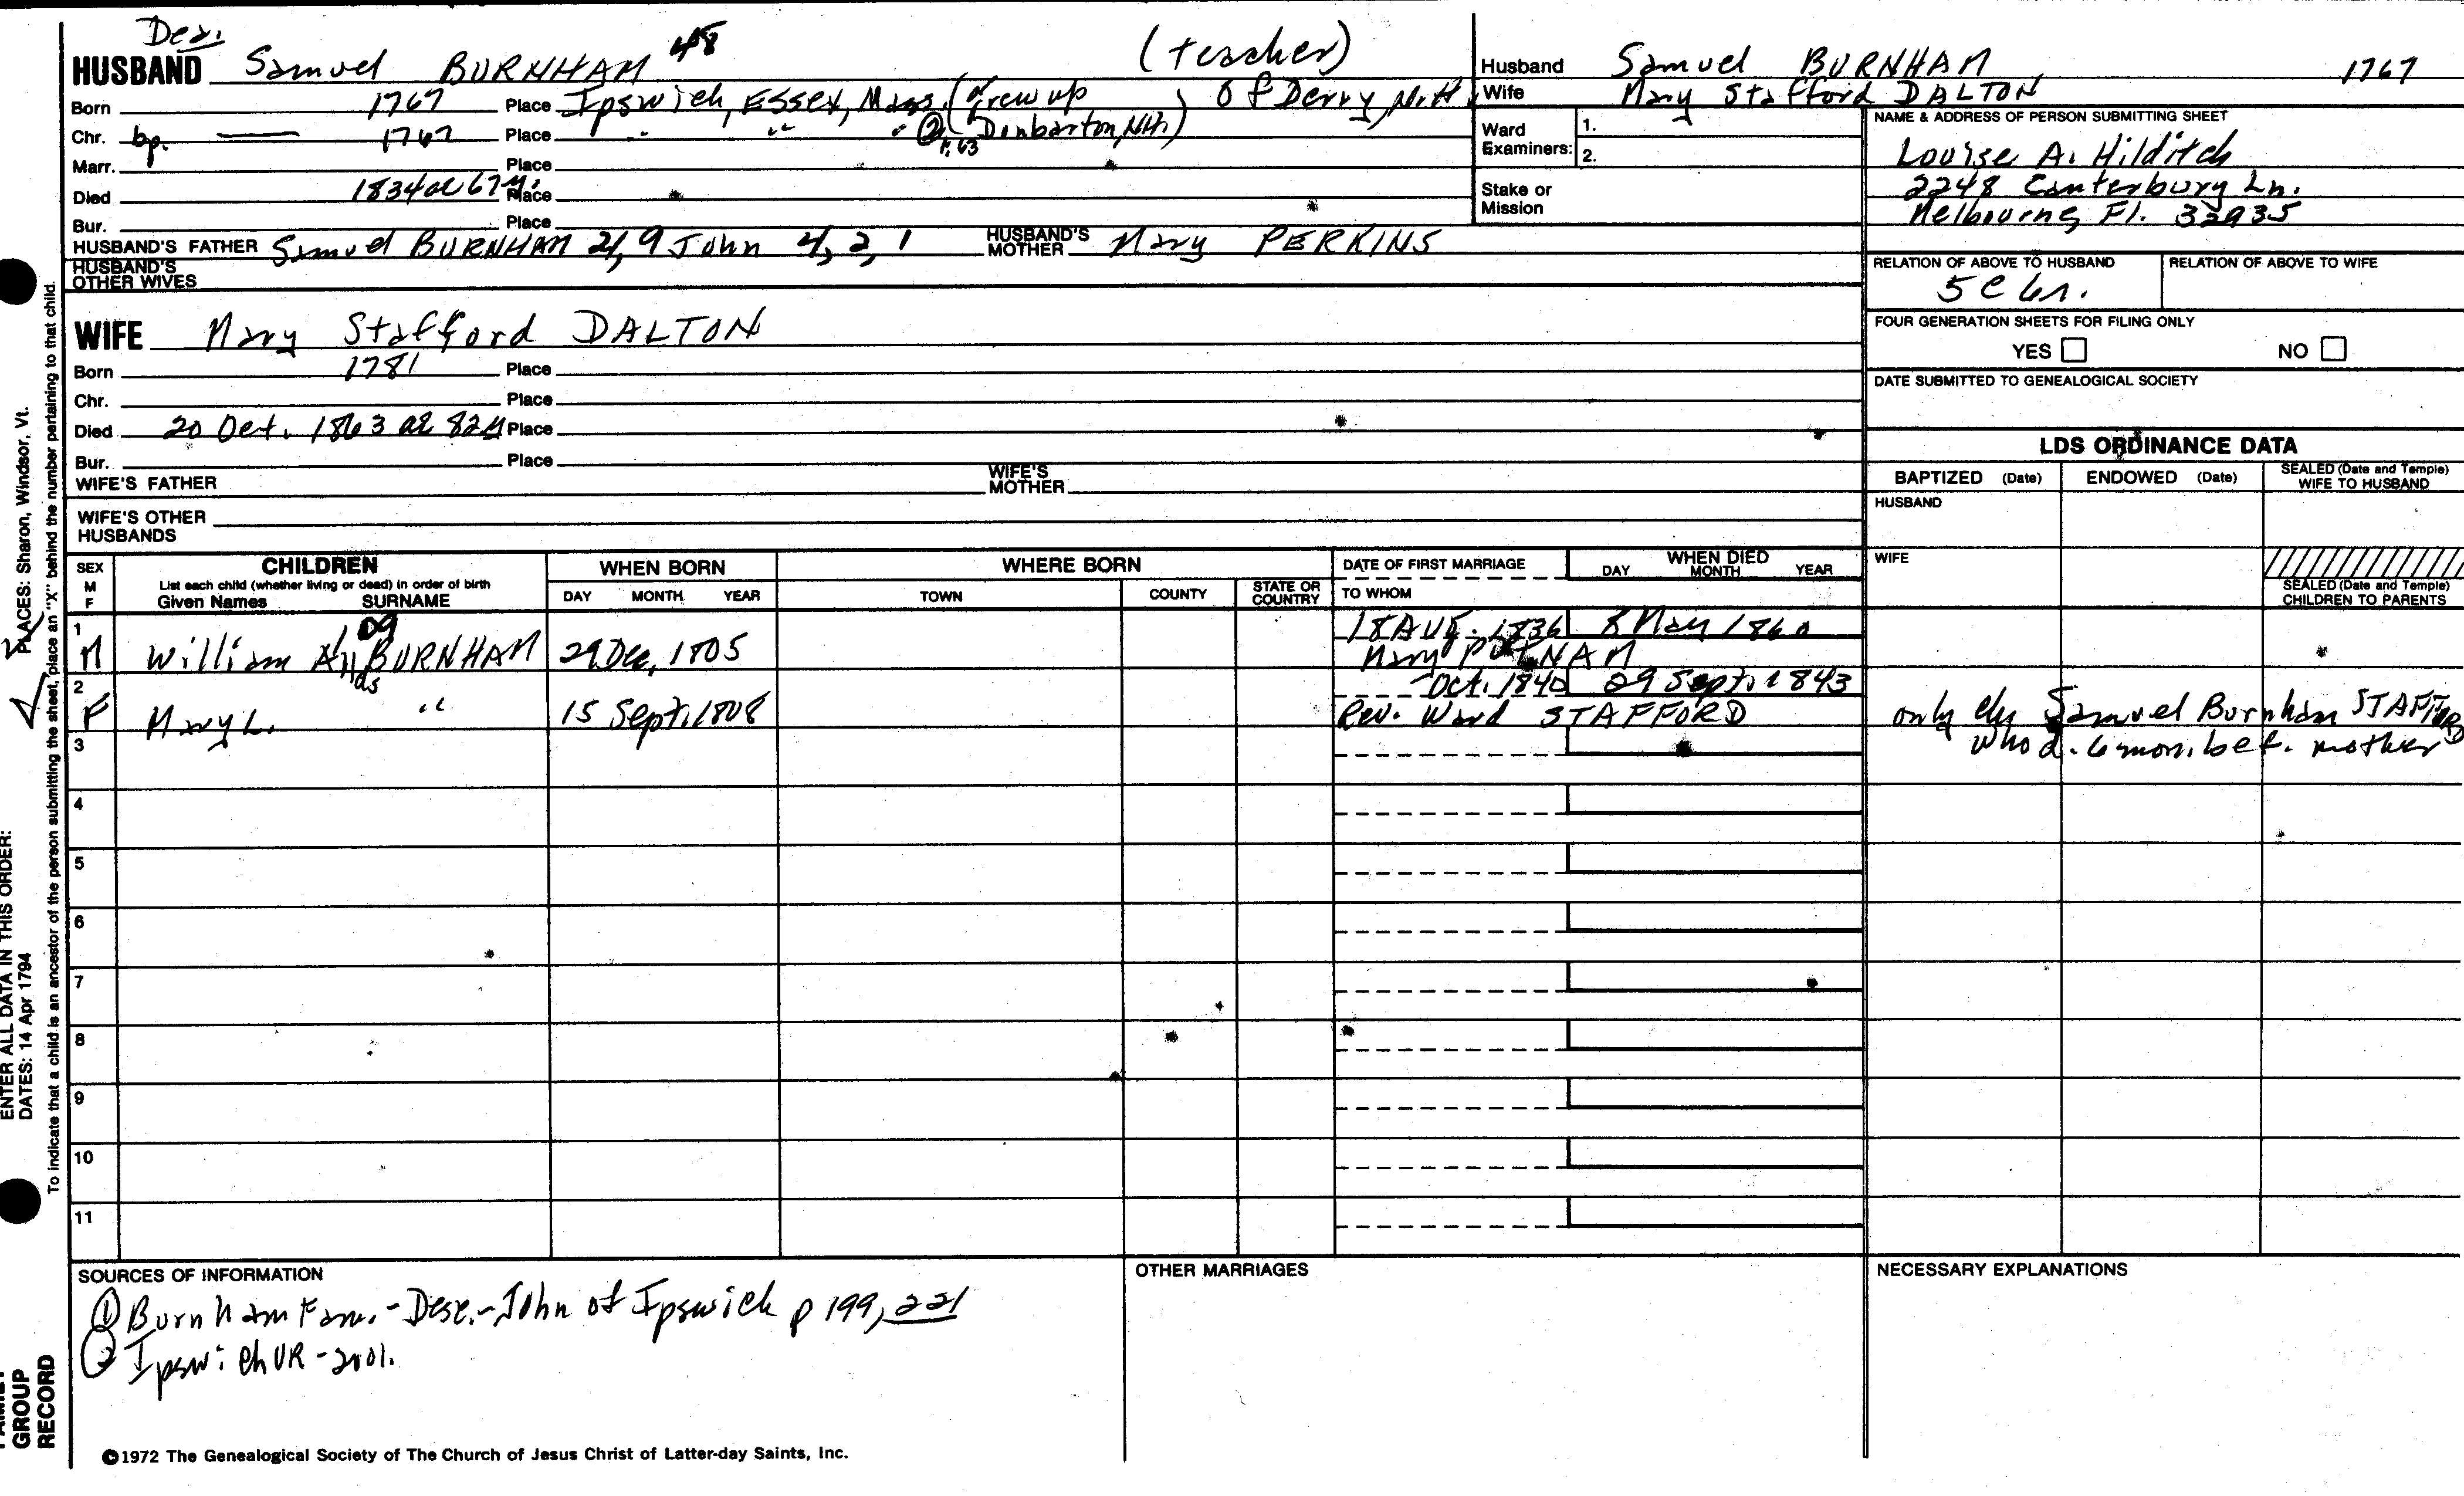 Dea.
HUSBAND Samuel BURNHAM 48 (teacher)
Born 1767 Place Ipswich, Essex, Mass. (grew up ) of Derry, N.H.
Chr. bp. 1767 Place " " " ② (Dunbarton, NH.)
p. 63
Marr. Place
Died 1834 ae 67 y. Place
Bur. Place
HUSBAND'S FATHER Samuel BURNHAM 21, 9 John 4, 2, 1 HUSBAND'S MOTHER Mary PERKINS
HUSBAND'S OTHER WIVES
WIFE Mary Stafford DALTON
Born 1781 Place
Chr. Place
Died 20 Oct. 1863 ae 82y Place
Bur. Place
WIFE'S FATHER WIFE'S MOTHER
WIFE'S OTHER HUSBANDS
Husband Samuel BURNHAM 1767
Wife Mary Stafford DALTON
Ward Examiners: 1.
2.
Stake or Mission
NAME & ADDRESS OF PERSON SUBMITTING SHEET
Louise A. Hilditch
2248 Canterbury Ln.
Melbourne, Fl. 32935
RELATION OF ABOVE TO HUSBAND RELATION OF ABOVE TO WIFE
5 c 6r.
FOUR GENERATION SHEETS FOR FILING ONLY
YES NO
DATE SUBMITTED TO GENEALOGICAL SOCIETY
LDS ORDINANCE DATA
BAPTIZED (Date) ENDOWED (Date) SEALED (Date and Temple) WIFE TO HUSBAND
HUSBAND
WIFE
SEALED (Date and Temple) CHILDREN TO PARENTS
SEX M F CHILDREN WHEN BORN WHERE BORN DATE OF FIRST MARRIAGE WHEN DIED
List each child (whether living or dead) in order of birth
Given Names SURNAME DAY MONTH YEAR TOWN COUNTY STATE OR COUNTRY TO WHOM DAY MONTH YEAR
109
1 18 AUG. 1836 8 May 1860
M William Allds BURNHAM 29 Dec, 1805 Mary PUTNAM
2 Oct. 1840 29 Sept. 1843
F Mary L. " 15 Sept. 1808 Rev. Ward STAFFORD only ch. Samuel Burnham STAFFORD
who d. 6 mon. bef. mother
3
4
5
6
7
8
9
10
11
SOURCES OF INFORMATION
① Burnham Fam. - Desc. - John of Ipswich p 199, 221
② Ipswich VR - 2001.
OTHER MARRIAGES
NECESSARY EXPLANATIONS
©1972 The Genealogical Society of The Church of Jesus Christ of Latter-day Saints, Inc.
GROUP
RECORD
ENTER ALL DATA IN THIS ORDER:
DATES: 14 Apr 1794
PLACES: Sharon, Windsor, Vt.
To indicate that a child is an ancestor of the person submitting the sheet, place an "X" behind the number pertaining to that child.